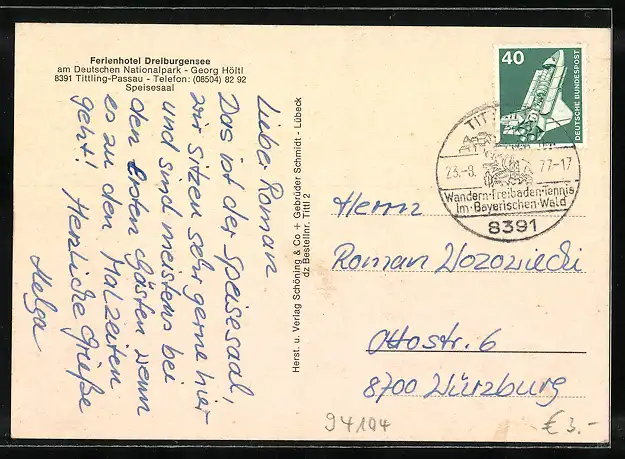 Ferienhotel Dreiburgensee
am Deutschen Nationalpark - Georg Höltl
8391 Tittling-Passau - Telefon: (08504) 82 92
Speisesaal
Lieber Roman
Das ist der Speisesaal,
wir sitzen sehr gerne hier
und sind meistens bei
den Ersten Gästen wenn
es zu den Malzeiten
geht! Herzliche Grüße
Helga
Herst. u. Verlag Schöning & Co + Gebrüder Schmidt - Lübeck
dz Bestellnr. Tittl 2
40
DEUTSCHE BUNDESPOST
TIT
23.-8. 77-17
Wandern·Freibaden·Tennis
im·Bayerischen·Wald
8391
Herrn
Roman Wozowiecki
Ottostr. 6
8700 Würzburg
94104
€ 3.-